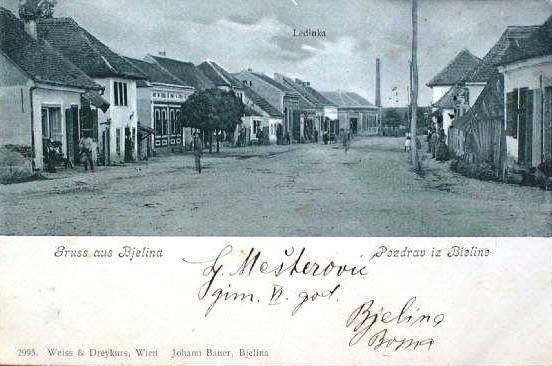 Ledinka
Gruss aus Bjelina
Pozdrav iz Bieline
Mešterović
gim. VI. god.
Bjelina
2995. Weiss & Dreykurs, Wien Johann Bauer, Bjelina